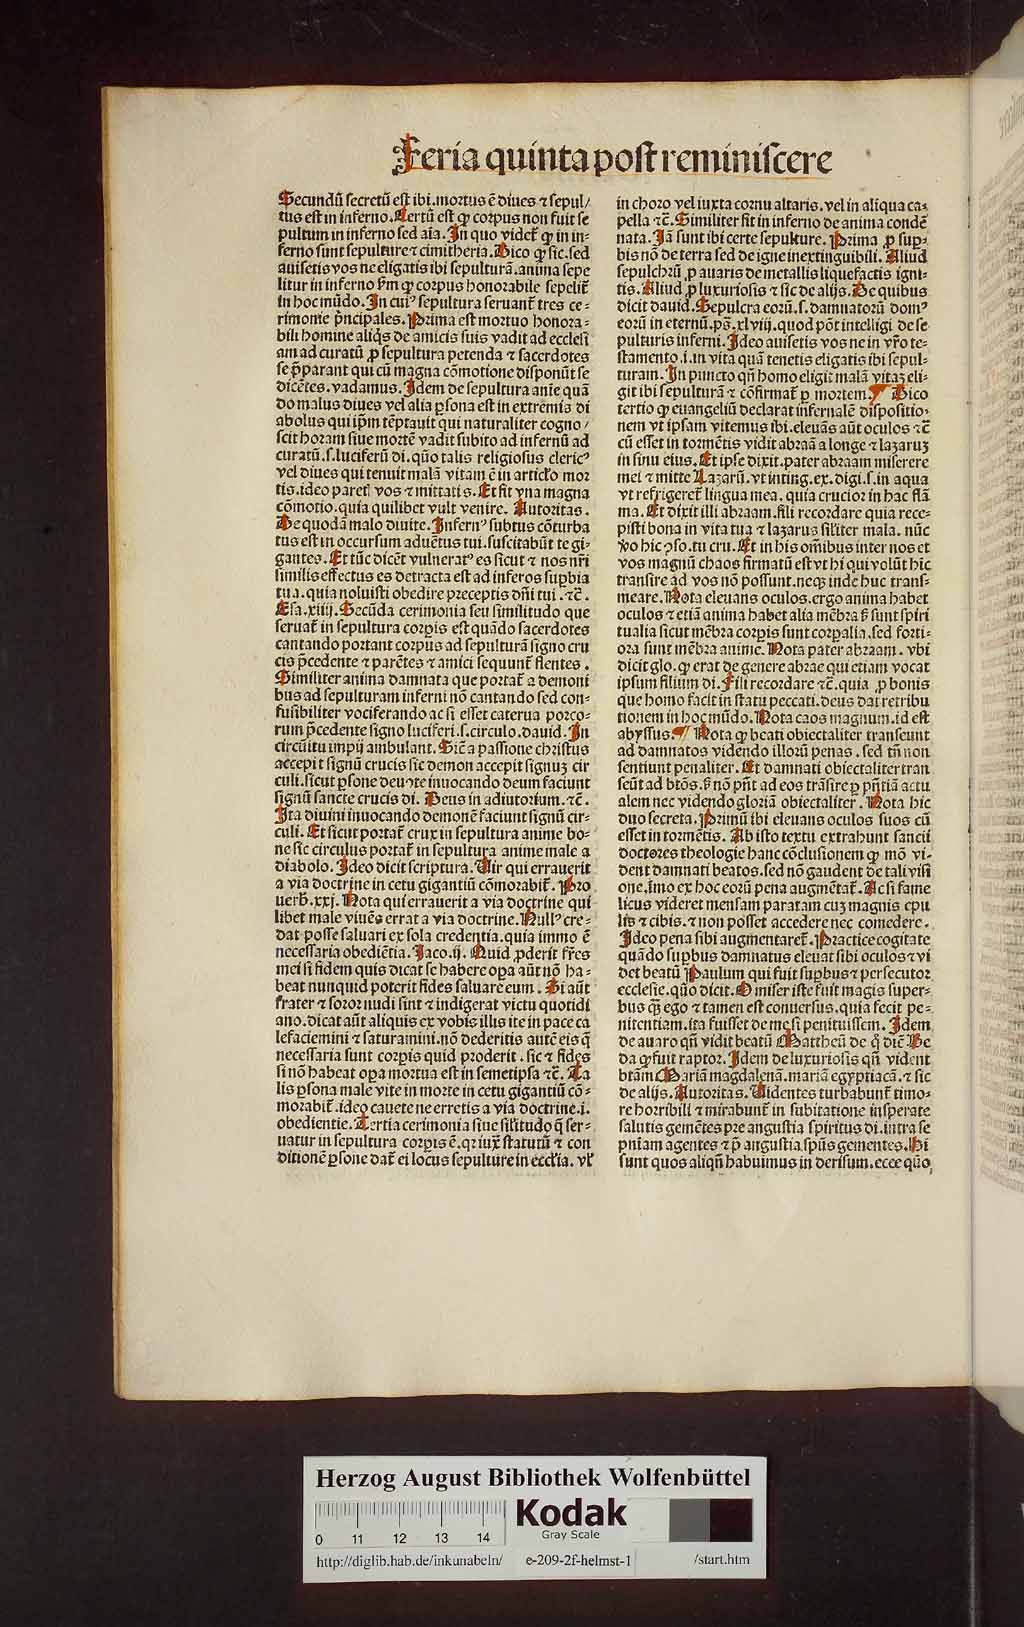 Feria quinta post reminiscere
Secundū secretū est ibi.mortus ē diues ⁊ sepul/
tus est in inferno.Certū est ꝙ corpus non fuit se
pultum in inferno sed aīa.In quo videt̄ ꝙ in in⸗
ferno sunt sepulture ⁊ cimitheria.Dico ꝙ sic.sed
auisetis vos ne eligatis ibi sepulturā.anima sepe
litur in inferno ẜm ꝙ corpus honorabile sepelit̄
in hoc mūdo.In cuiꝰ sepultura seruant̄ tres ce⸗
rimonie p̄ncipales.Prima est mortuo honora⸗
bili homine aliq̄s de amicis suis vadit ad ecclesi
am ad curatū ꝓ sepultura petenda ⁊ sacerdotes
se p̄parant qui cū magna cōmotione disponūt se
dicētes.vadamus.Idem de sepultura anīe quā
do malus diues vel alia ꝑsona est in extremis di
abolus qui ip̄m tēptauit qui naturaliter cogno/
scit horam siue mortē vadit subito ad infernū ad
curatū.s.luciferū di.quō talis religiosus clericꝰ
vel diues qui tenuit malā vitam ē in articło mor
tis.ideo paret̄ vos ⁊ mittatis.Et fit vna magna
cōmotio.quia quilibet vult venire. Autoritas.
De quodā malo diuite.Infernꝰ subtus cōturba
tus est in occursum aduētus tui.suscitabūt te gi⸗
gantes.Et tūc dicēt vulneratꝰ es sicut ⁊ nos nr̄i
similis effectus es detracta est ad inferos suꝑbia
tua.quia noluisti obedire preceptis dn̄i tui.⁊c̄.
Esa.xiiij.Secūda cerimonia seu similitudo que
seruat̄ in sepultura corꝑis est quādo sacerdotes
cantando portant corpus ad sepulturā signo cru
cis p̄cedente ⁊ parētes ⁊ amici sequunt̄ flentes.
Similiter anima damnata que portat̄ a demoni
bus ad sepulturam inferni nō cantando sed con⸗
fusibiliter vociferando ac si esset caterua porco⸗
rum p̄cedente signo luciferi.s.circulo.dauid. In
circūitu impij ambulant.Sic̄ a passione christus
accepit signū crucis sic demon accepit signuꝫ cir
culi.sicut ꝑsone deuote inuocando deum faciunt
signū sancte crucis di. Deus in adiutorium.⁊c̄.
Ita diuini inuocando demonē faciunt signū cir⸗
culi. Et sicut portat̄ crux in sepultura anime bo⸗
ne sic circulus portat̄ in sepultura anime male a
diabolo. Ideo dicit scriptura. Vir qui errauerit
a via doctrine in cetu gigantiū cōmorabit̄. Pro
uerb̄.xxj. Nota qui errauerit a via doctrine qui
libet male viuēs errat a via doctrine.Nullꝰ cre⸗
dat posse saluari ex sola credentia.quia immo ē
necessaria obediētia. Iaco.ij. Quid ꝓderit fr̄es
mei si fidem quis dicat se habere opa aūt nō ha⸗
beat nunquid poterit fides saluare eum. Si aūt
frater ⁊ soror nudi sint ⁊ indigerāt victu quotidi
ano.dicat aūt aliquis ex vobis illis ite in pace ca
lefaciemini ⁊ saturamini.nō dederitis autē eis q̄
necessaria sunt corꝑis quid proderit.sic ⁊ fides
si nō habeat oꝑa mortua est in semetipsa ⁊c̄. Ta
lis ꝑsona male vite in morte in cetu gigantiū cō⸗
morabit̄.ideo cauete ne erretis a via doctrine.i.
obedientie.Tertia cerimonia siue sil̄itudo q̄ ser⸗
uatur in sepultura corꝑis ē.qꝛ iux̄ statutū ⁊ con
ditionē ꝑsone dat̄ ei locus sepulture in eccl̄ia.vl̄
in choro vel iuxta cornu altaris.vel in aliqua ca⸗
pella ⁊c̄.Similiter fit in inferno de anima condē
nata.Iā sunt ibi certe sepulture.Prima ꝓ suꝑ⸗
bis nō de terra sed de igne inextinguibili. Aliud
sepulchrū ꝓ auaris de metallis liquefactis igni⸗
tis.Aliud ꝓ luxuriosis ⁊ sic de alijs.De quibus
dicit dauid.Sepulcra eorū.s.damnatorū domꝰ
eorū in eternū.ps̄.xlviij.quod pōt intelligi de se
pulturis inferni.Ideo auisetis vos ne in vr̄o te⸗
stamento.i.in vita quā tenetis eligatis ibi sepul⸗
turam.In puncto qn̄ homo eligit malā vitaꝫ eli⸗
git ibi sepulturā ⁊ cōfirmat̄ ꝑ mortem.¶ Dico
tertio ꝙ euangeliū declarat infernalē dispositio⸗
nem vt ipsam vitemus ibi.eleuās aūt oculos ⁊c̄
cū esset in tormētis vidit abraā a longe ⁊ lazaruꝫ
in sinu eius.Et ipse dixit.pater abraam miserere
mei ⁊ mitte Lazarū.vt inting.ex.digi.s.in aqua
vt refrigeret̄ lingua mea.quia crucior in hac flā
ma.Et dixit illi abraam.fili recordare quia rece⸗
pisti bona in vita tua ⁊ lazarus sil̄iter mala.nūc
ꝟo hic ꝯso.tu cru.Et in his om̄ibus inter nos et
vos magnū chaos firmatū est vt hi qui volūt hīc
transire ad vos nō possunt.neqꝫ inde huc trans⸗
meare.Nota eleuans oculos.ergo anima habet
oculos ⁊ etiā anima habet alia mēbra ꝗ sunt spiri
tualia sicut mēbra corꝑis sunt corꝑalia.sed forti⸗
ora sunt mēbra anime.Nota pater abraam. vbi
dicit glo.ꝙ erat de genere abrae qui etiam vocat
ipsum filium di.Fili recordare ⁊c̄.quia ꝓ bonis
que homo facit in statu peccati.deus dat retribu
tionem in hoc mūdo. Nota caos magnum.id est
abyssus.¶ Nota ꝙ beati obiectaliter transeunt
ad damnatos videndo illorū penas.sed tn̄ non
sentiunt penaliter. Et damnati obiectaliter tran
seūt ad btōs.ꝗ nō pn̄t ad eos trāsire ꝑ pn̄tiā actu
alem nec videndo gloriā obiectaliter. Nota hic
duo secreta.Primū ibi eleuans oculos suos cū
esset in tormētis. Ab isto textu extrahunt sancti
doctores theologie hanc cōclusionem ꝙ mō vi⸗
dent damnati beatos.sed nō gaudent de tali visi
one.īmo ex hoc eorū pena augmētat̄.Ac si fame
licus videret mensam paratam cuꝫ magnis epu
lis ⁊ cibis.⁊ non posset accedere nec comedere.
Ideo pena sibi augmentaret̄.Practice cogitate
quādo suꝑbus damnatus eleuat sibi oculos ⁊ vi
det beatū Paulum qui fuit suꝑbus ⁊ persecutor
ecclesie.quō dicit.O miser iste fuit magis super⸗
bus q̄ꝫ ego ⁊ tamen est conuersus.quia fecit pe⸗
nitentiam.ita fuisset de me si penituissem. Idem
de auaro qn̄ vidit beatū Mattheū de q̄ dic̄ Be
da ꝙ fuit raptor.Idem de luxuriosis qn̄ vident
btām Mariā magdalenā.mariā egyptiacā.⁊ sic
de alijs.Autoritas.Videntes turbabunt̄ timo⸗
re horribili ⁊ mirabunt̄ in subitatione insperate
salutis gemētes pre angustia spiritus di.intra se
pn̄iam agentes ⁊ p̄ angustia spūs gementes.Hi
sunt quos aliqn̄ habuimus in derisum.ecce quō
Herzog August Bibliothek Wolfenbüttel
Kodak
Gray Scale
0 11 12 13 14
http://diglib.hab.de/inkunabeln/ e-209-2f-helmst-1 /start.htm